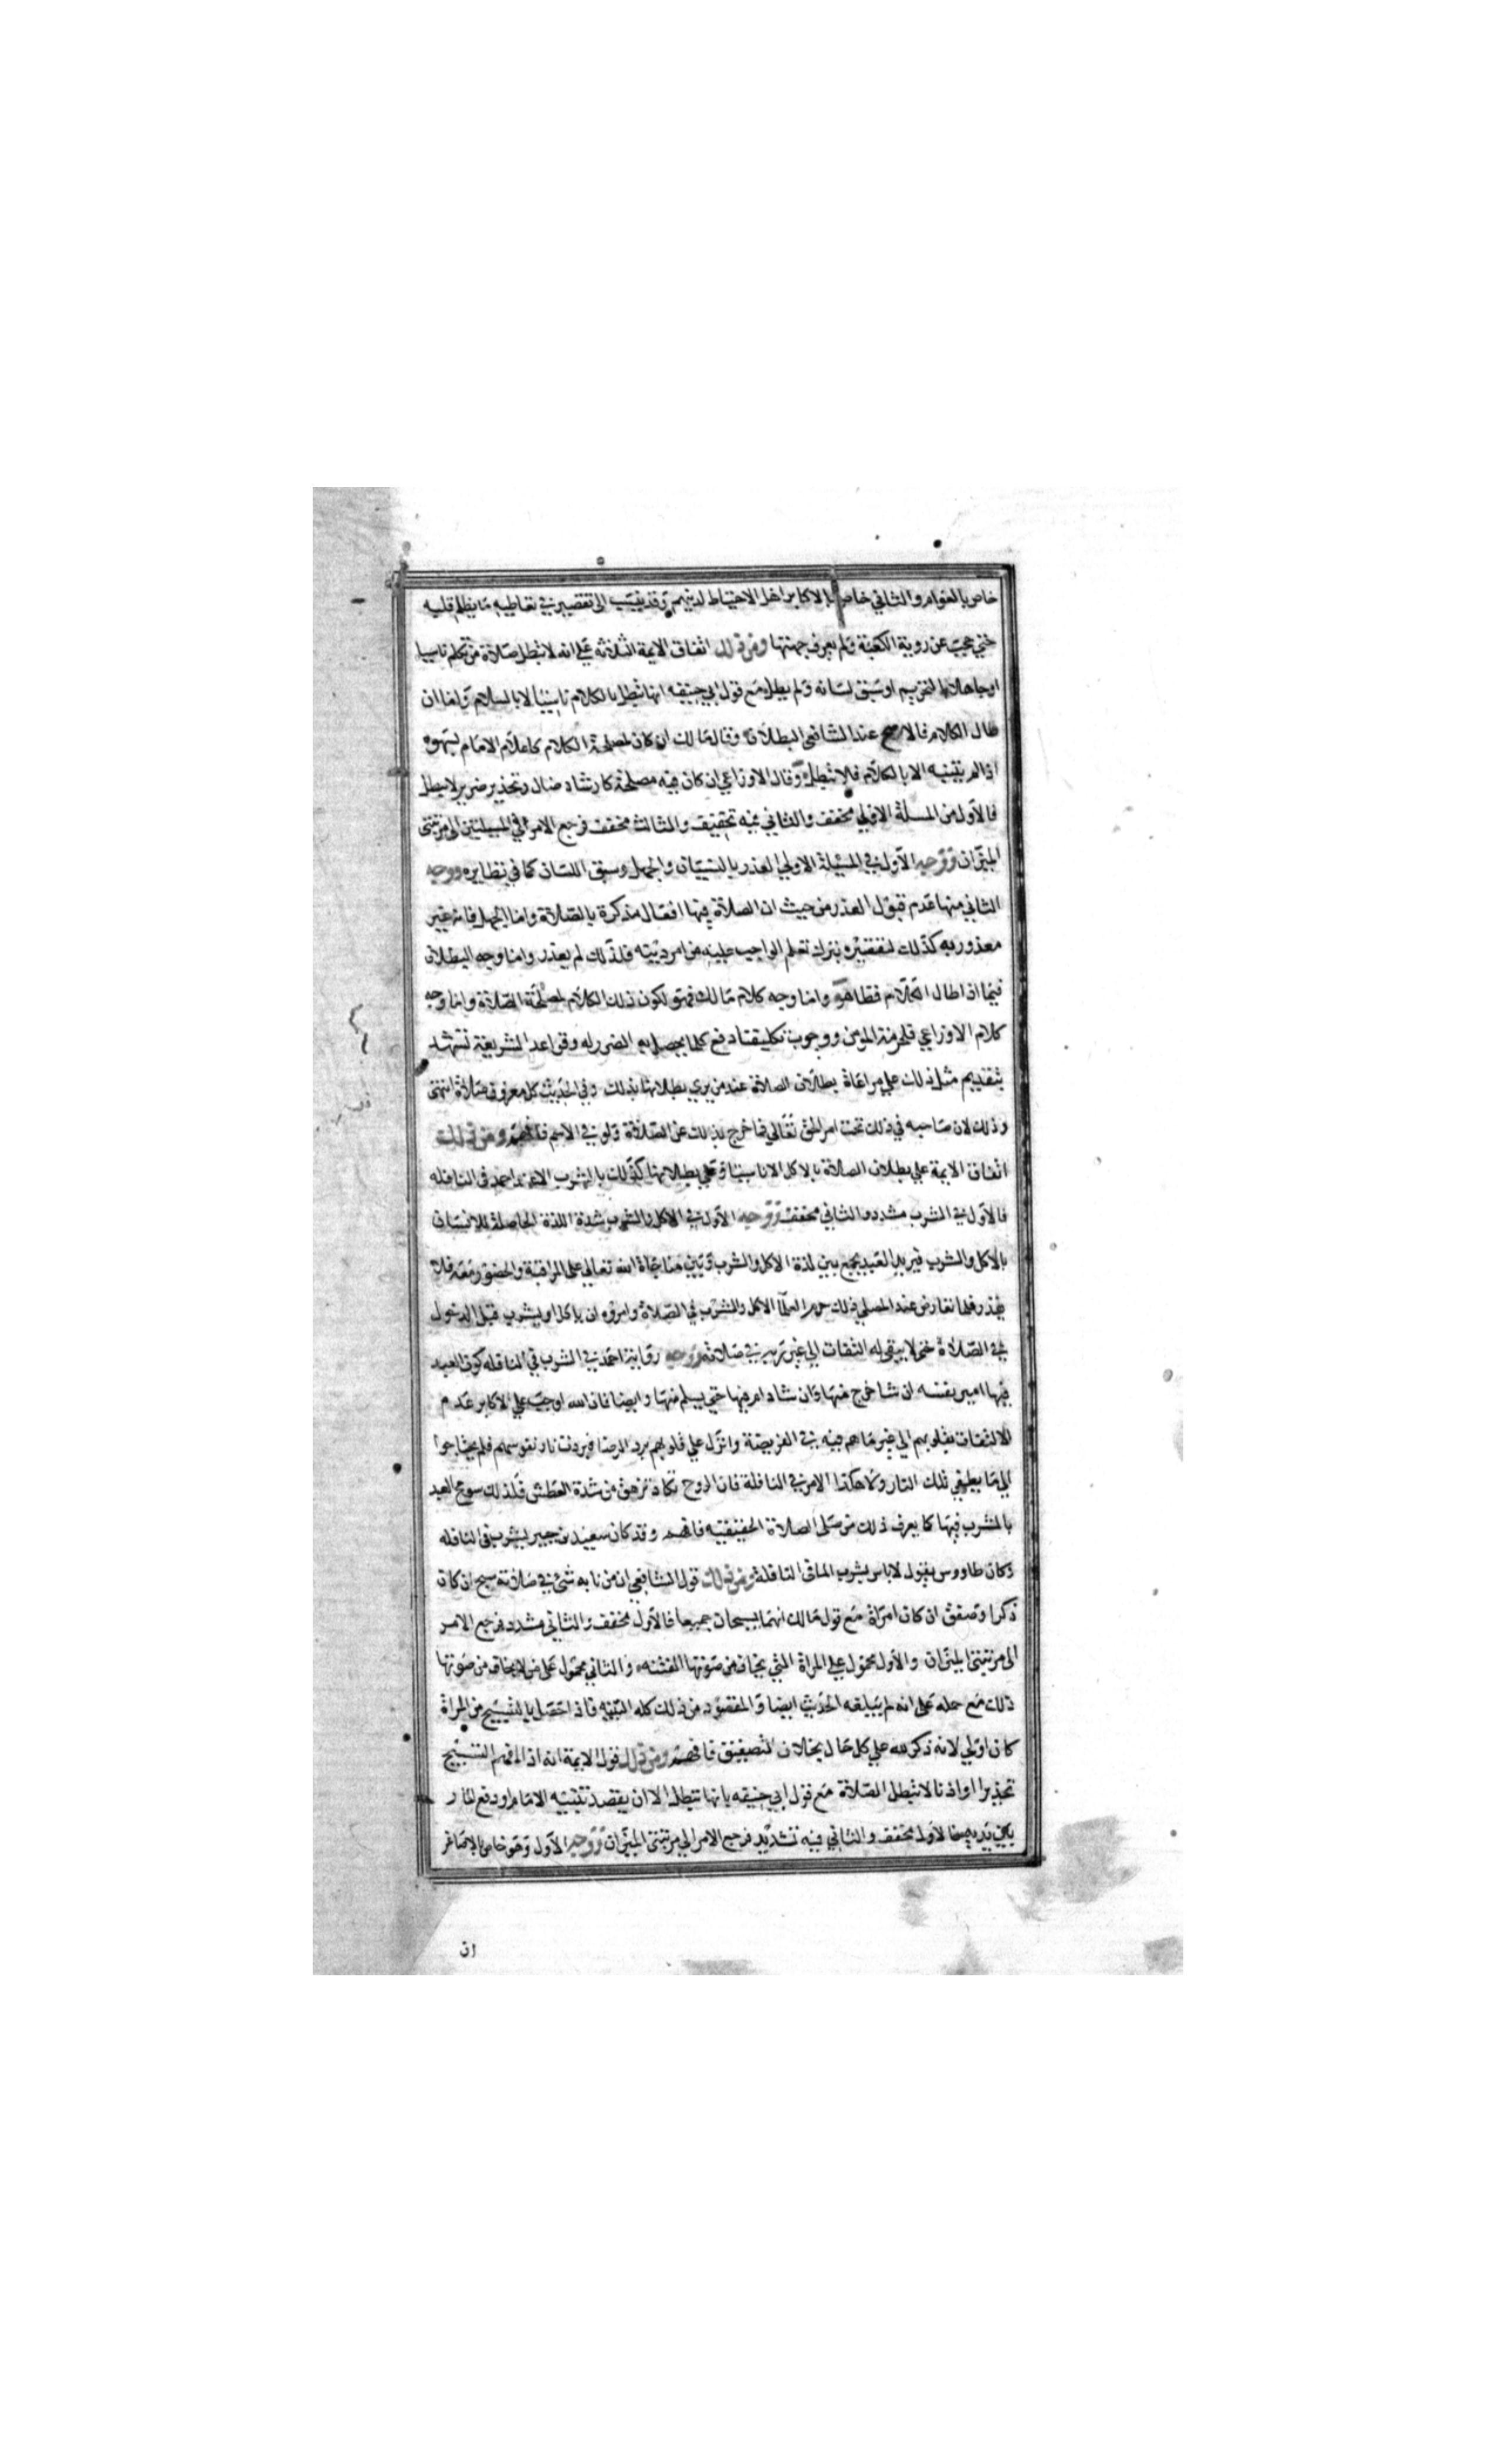 خاص بالعوام والثاني خاص بالاكابر اهل الاحتياط لدينهم وقد ينسب الى تقصير في تعاطيه ما يظلم قلبه
حتى حجب عن روية الكعبة ولم يعرف جهتها ومن ذلك اتفاق الايمة الثلاثه على انه لا تبطل صلاة من تكلم ناسيا
او جاهلا بالتحريم او سبق لسانه ولم يطل مع قول ابي حنيفه انها تبطل بالكلام ناسيا لا بالسلام واما ان
طال الكلام فالاصح عند الشافعى البطلان وقال مالك ان كان لمصلحة الكلام كاعلام الامام بسهوه
اذا لم يتنبه الا بالكلام فلا تبطل وقال الاوزاعي ان كان فيه مصلحة كارشاد ضال وتحذير ضرير لا تبطل
فالاول من المسلة الاولي مخفف والثاني فيه تخفيف والثالث مخفف فرجع الامر في المسيلتين الى مرتبتى
الميزان ووجه الاول في المسيلة الاولي العذر بالنسيان والجهل وسبق اللسان كما في نظايره ووجه
الثاني منها عدم قبول العذر من حيث ان الصلاة فيها افعال مذكرة بالصلاة واما الجهل فانه غير
معذور به كذلك لتقصيره بترك تعلم الواجب عليه من امر دينه فلذلك لم يعذر واما وجه البطلان
فيما اذا طال الكلام فظاهر واما وجه كلام مالك فهو لكون ذلك الكلام لمصلحة الصلاة واما وجه
كلام الاوزاعي فلحرمة المومن ووجوب تكليفنا دفع كلما يحصل به الضرر له وقواعد الشريعة تشهد
بتقديم مثل ذلك على مراعاة بطلان الصلاة عند من يرى بطلانها بذلك وفي الحديث كل معروف صلاة انتهى
وذلك لان صاحبه في ذلك تحت امر الحق تعالى فما خرج بذلك عن الصلاة ولو في الاسم فافهم ومن ذلك
اتفاق الايمة على بطلان الصلاة بالاكل الا ناسيا وعلى بطلانها كذلك بالشرب الا عند احمد في النافله
فالاول في الشرب مشدد والثاني مخفف ووجه الاول في الاكل والشرب شدة اللذة الحاصلة للانسان
بالاكل والشرب فيريد العبد يجمع بين لذة الاكل والشرب وبين مناجاة الله تعالى على المراقبة والحضور معه فلا
يقدر فلما تعارض عند المصلي ذلك حرم العلما الاكل والشرب في الصلاة وامروه ان ياكل او يشرب قبل الدخول
في الصلاة حتى لا يبقى له التفات الى غير ربه في صلاته ووجه رواية احمد في الشرب في النافله كون العبد
فيها امير نفسه ان شا خرج منها وان شا دام فيها حتى يسلم منها وايضا فان الله اوجب على الاكابر عدم
الالتفات بقلوبهم الى غير ما هم فيه في الفريضة وانزل على قلوبهم برد الرضا فبردت نار نفوسهم فلم يحتاجوا
الى ما يطفي تلك النار ولا هكذا الامر في النافلة فان الروح تكاد تزهق من شدة العطش فلذلك سومح العبد
بالشرب فيها كما يعرف ذلك من صلى الصلاة الحقيقيه فافهم وقد كان سعيد بن جبير يشرب في النافله
وكان طاووس يقول لا باس بشرب الما في النافلة ومن ذلك قول الشافعي ان من نابه شئ في صلاته سبح ان كان
ذكرا وصفق ان كان امراة مع قول مالك انهما يسبحان جميعا فالاول مخفف والثاني مشدد فرجع الامر
الى مرتبتى الميزان والاول محمول على المراة التي يخاف من صوتها الفتنه والثاني محمول على من لا يخاف من صوتها
ذلك مع حمله على انه لم يبلغه الحديث ايضا والمقصود من ذلك كله التنبيه فاذا حصل بالتسبيح من المراة
كان اولي لانه ذكر لله على كل حال بخلاف التصفيق فافهم ومن ذلك قول الايمة انه اذا افهم التسبيح
تحذيرا او اذنا لا تبطل الصلاة مع قول ابي حنيفه بانها تبطل الا ان يقصد تنبيه الامام او دفع المار
بين يديه فالاول مخفف والثاني فيه تشديد فرجع الامر الى مرتبتى الميزان ووجه الاول وهو خاص بالاصاغر
ان